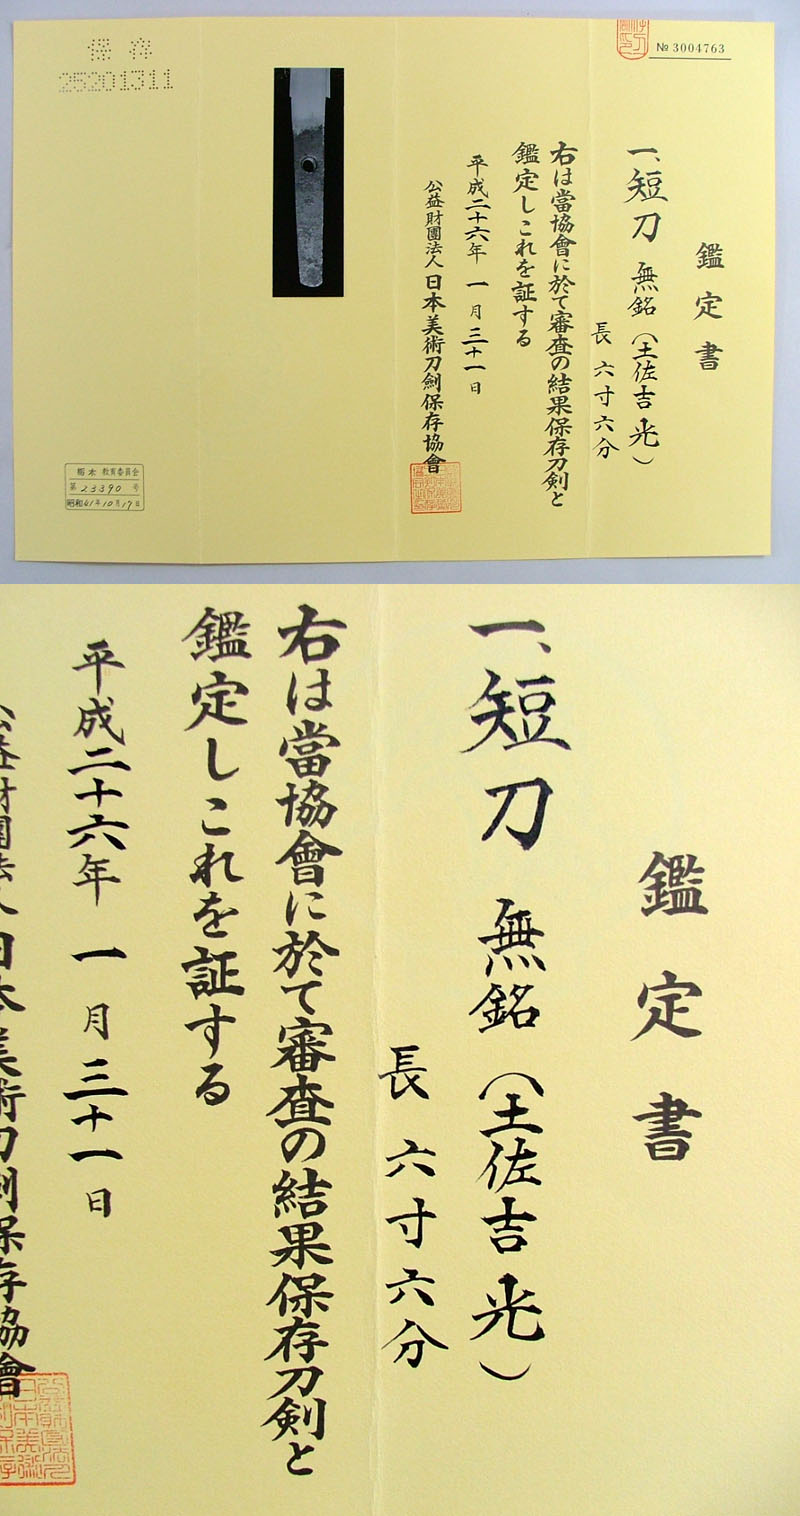 № 3004763
鑑定書
一、短刀 無銘(土佐吉光)
長 六寸六分
右は當協會に於て審査の結果保存刀剣と
鑑定しこれを証する
平成二十六年 一月三十一日
公益財團法人 日本美術刀劍保存協會
保存
25201311
栃木 教育委員会
第 23390 号
昭和41年10月17日
鑑定書
一、短刀 無銘(土佐吉光)
長 六寸六分
右は當協會に於て審査の結果保存刀剣と
鑑定しこれを証する
平成二十六年 一月三十一日
公益財團法人 日本美術刀劍保存協會